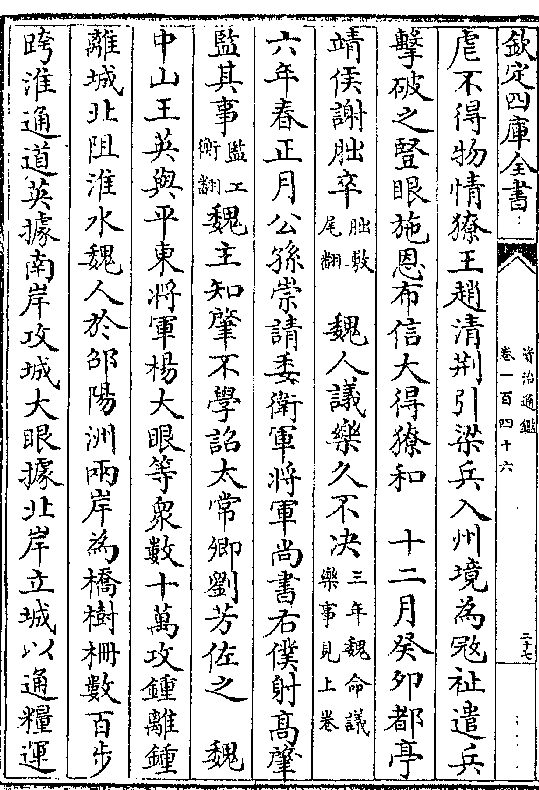 欽定四庫全書
資治通鑑
卷一百四十六
二十七
虐不得物情獠王趙清荆引梁兵入州境為寇祉遣兵
擊破之豎眼施恩布信大得獠和 十二月癸卯都亭
靖侯謝朏卒朏敷尾翻 魏人議樂久不决三年魏命議樂事見上卷
六年春正月公孫崇請委衛軍將軍尚書右僕射髙肇
監其事監工衡翻魏主知肇不學詔太常卿劉芳佐之 魏
中山王英與平東將軍楊大眼等衆數十萬攻鍾離鍾
離城北阻淮水魏人於邵陽洲兩岸為橋樹柵數百步
跨淮通道英據南岸攻城大眼據北岸立城以通糧運